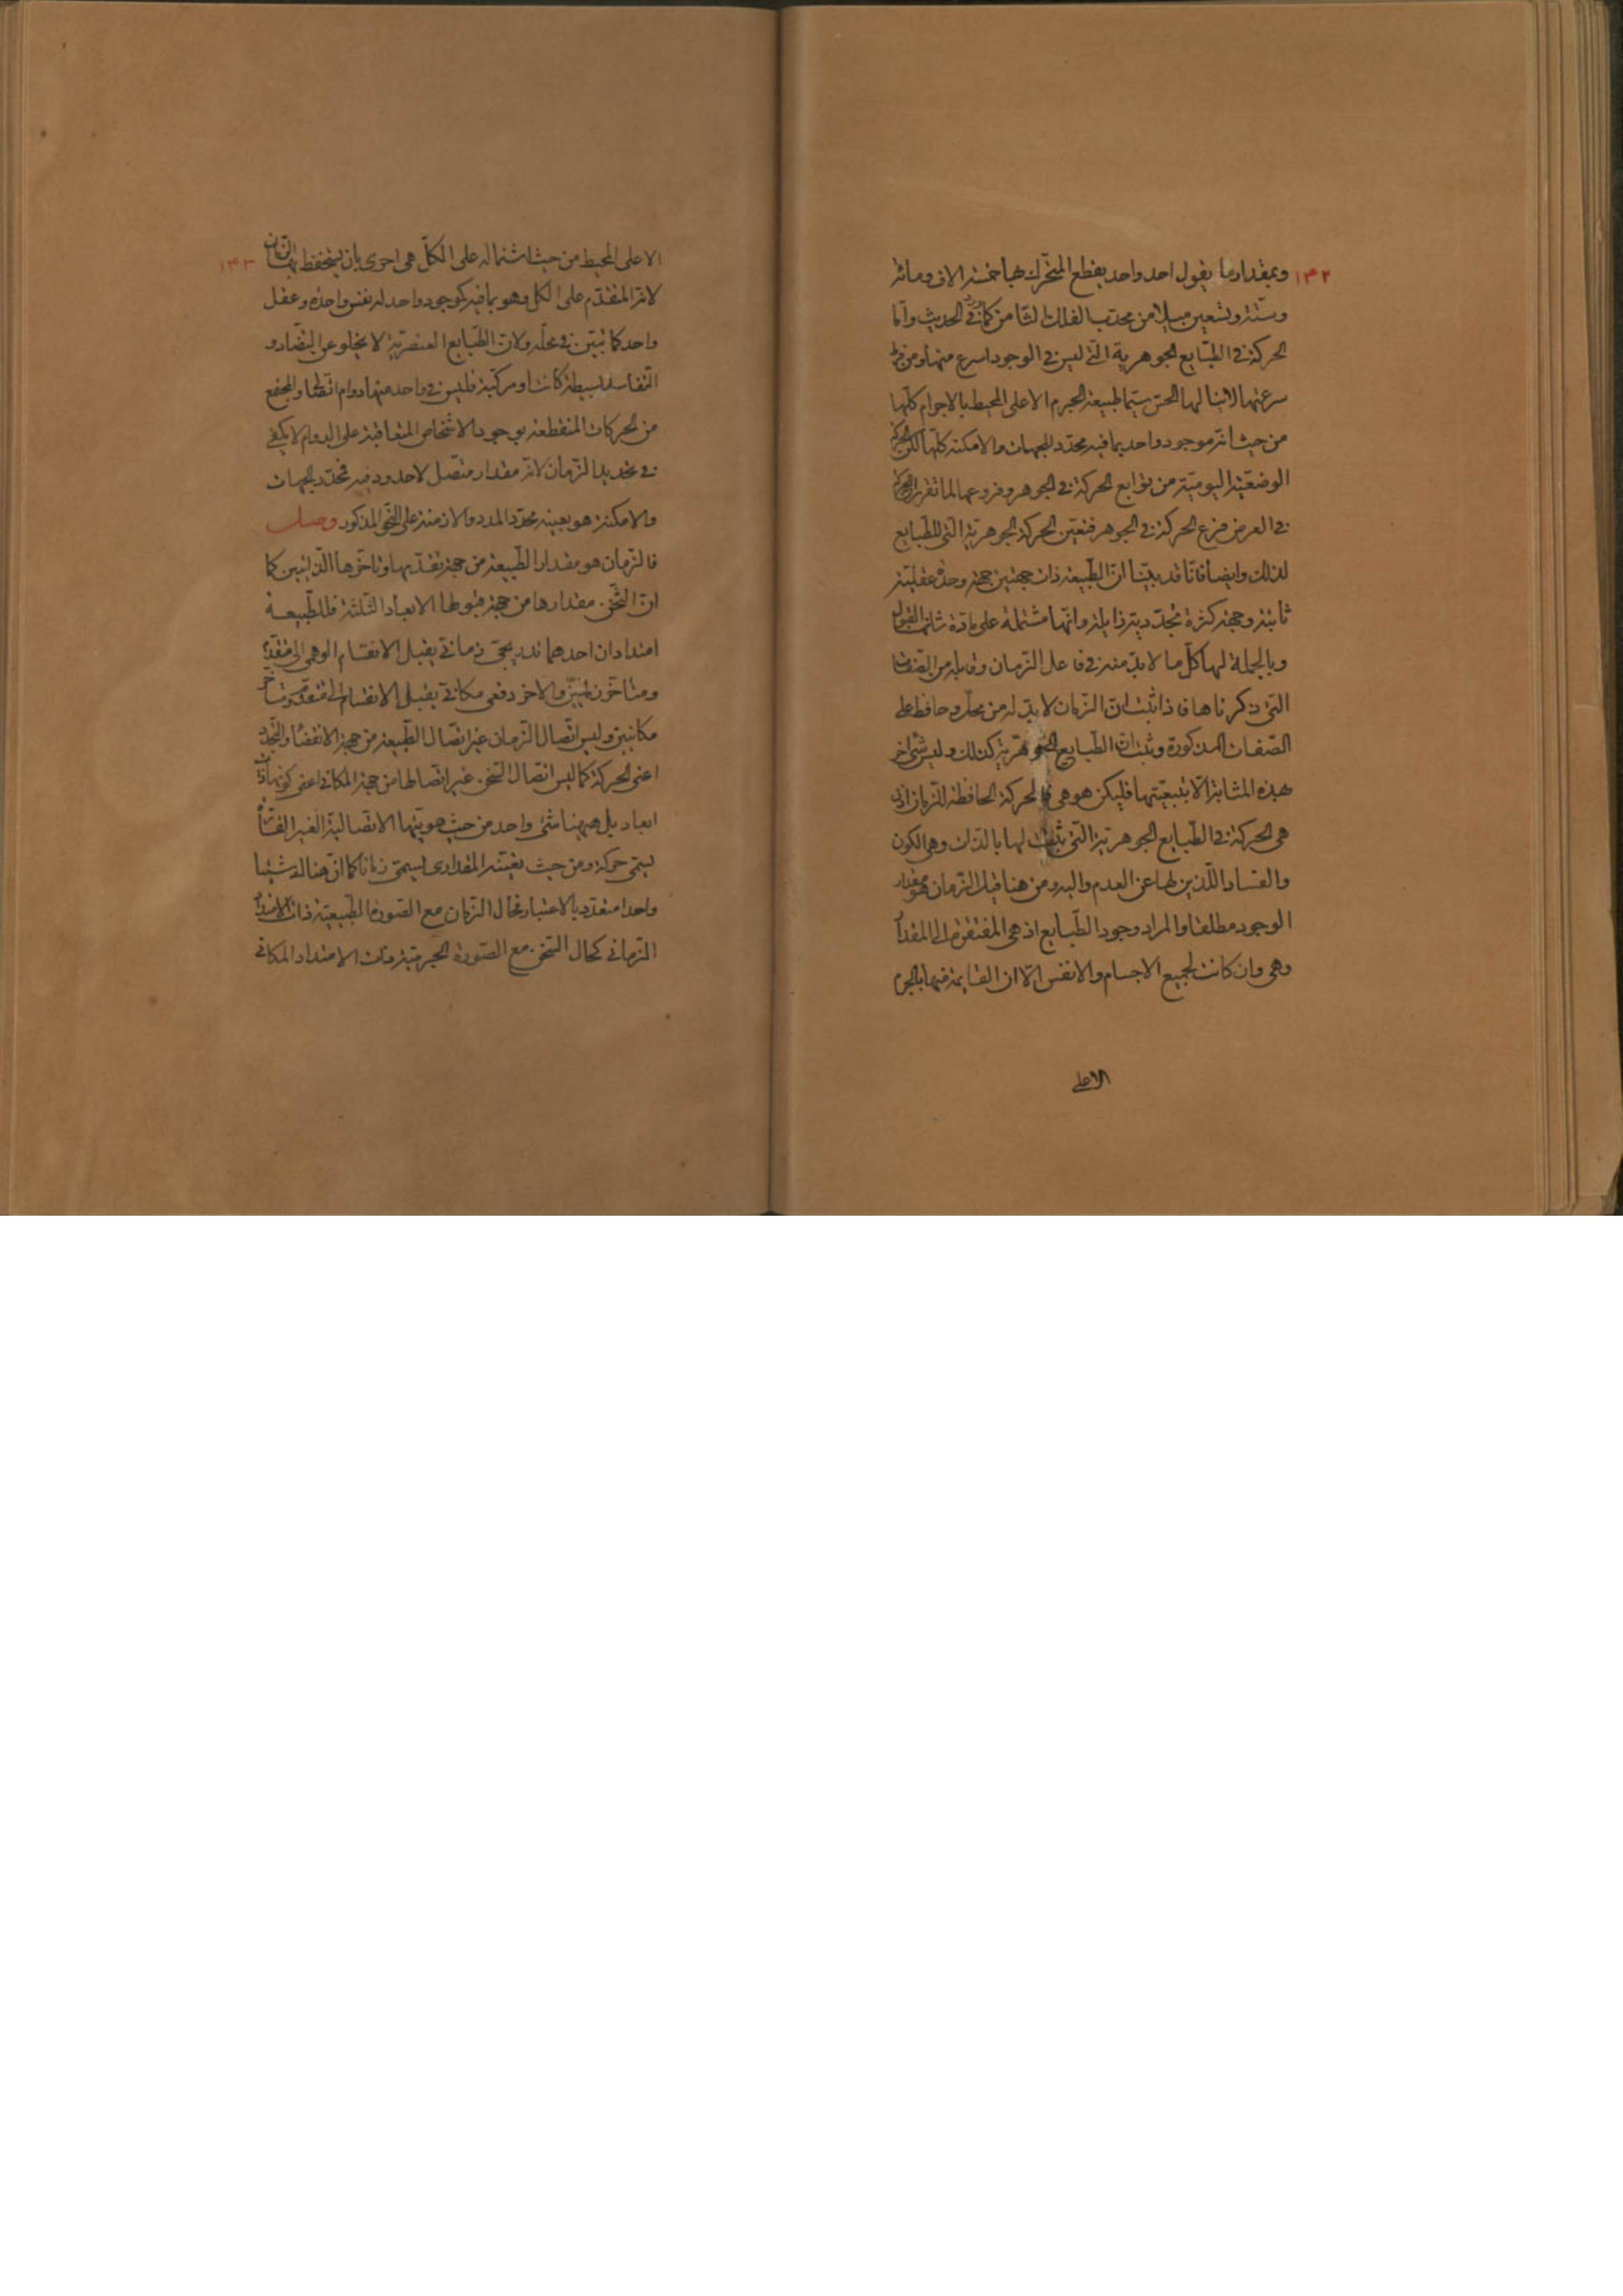 ١٤٢
وبمقدار ما يقول احد واحد يقطع المتحرك بها خمسة الاف ومائة
وستة وتسعين ميلا من محدب الفلك الثامن كما ورد في الحديث واما
الحركة في الطبايع الجوهرية التي ليس في الوجود اسرع منها ومن فرط
سرعتها لاينالها الحس سيما طبيعة الجرم الاعلى المحيط بالاجرام كلها
من حيث انه موجود واحد بما فيه محدد للجهات والامكنة كلها لكن الحركة
الوضعية اليومية من توابع الحركة في الجوهر وفروعها لما تقرر ان الحركة
في العرض فرع الحركة في الجوهر فتعين الحركة الجوهرية التي للطبايع
لذلك وايضا فانا قد بينا ان الطبيعة ذات جهتين جهة وحدة عقلية
ثابتة وجهة كثرة تجددية زايلة وانها مشتملة على مادة شانها القبول
وبالجملة لها كل ما لا بد منه في فاعل الزمان وقابله من الصفات
التي ذكرناها فاذا ثبت ان الزمان لا بد له من محل وحافظ على
الصفات المذكورة وثبت ان الطبايع الجوهرية كذلك وليس شئ اخر
بهذه المثابة الا بتبعيتها فليكن هو هي فالحركة الحافظة للزمان اذن
هي الحركة في الطبايع الجوهرية التي ثبتت لها بالذات وهي الكون
والفساد اللذين لها عن العدم واليه ومن هنا قيل الزمان هو مقدار
الوجود مطلقا والمراد وجود الطبايع اذ هي المفتقرة الى المقدار
وهي وان كانت لجميع الاجسام والانفس الا ان القايمة فيها بالجرم
الاعلى
١٤٣
الاعلى المحيط من حيث اشتماله على الكل هي احرى بان يستحفظ بها الزمان
لانه المتقدم على الكل وهو بما فيه كموجود واحد له نفس واحدة وعقل
واحد كما تبين في محله ولان الطبايع العنصرية لا يخلو عن التضاد و
التفاسد بسيطة كانت او مركبة فليس في واحد منها دوام اتصال والمجتمع
من الحركات المنقطعة بوجود الاشخاص المتعاقبة على الدوام لا يكفي
في تحديد الزمان لانه مقدار متصل لا حدود فيه فمحدد الجهات
والامكنة هو بعينه محدد المدد والازمنة على النحو المذكور وصل
فالزمان هو مقدار الطبيعة من جهة تقدمها وتاخرها الذاتيين كما
ان الثخن مقدارها من جهة قبولها الابعاد الثلثة فللطبيعة
امتدادان احدهما تدريجي زماني يقبل الانقسام الوهمي الى متقدم
ومتاخر زمانيين والاخر دفعي مكاني يقبل الانقسام الى متقدم ومتاخر
مكانيين وليس اتصال الزمان غير اتصال الطبيعة من جهة الانقضاء والتجدد
اعني الحركة كما ليس اتصال الثخن غير اتصالها من جهة المكان اعني كونها ذات
ابعاد بل هيهنا شئ واحد من حيث هويتها الاتصالية الغير القارة
يسمى حركة ومن حيث تعينه المقداري يسمى زمانا كما ان هنالك شيئا
واحدا متعدد بالاعتبار فحال الزمان مع الصورة الطبيعية ذات الامتداد
الزماني كحال الثخن مع الصورة الجرمية ذات الامتداد المكاني